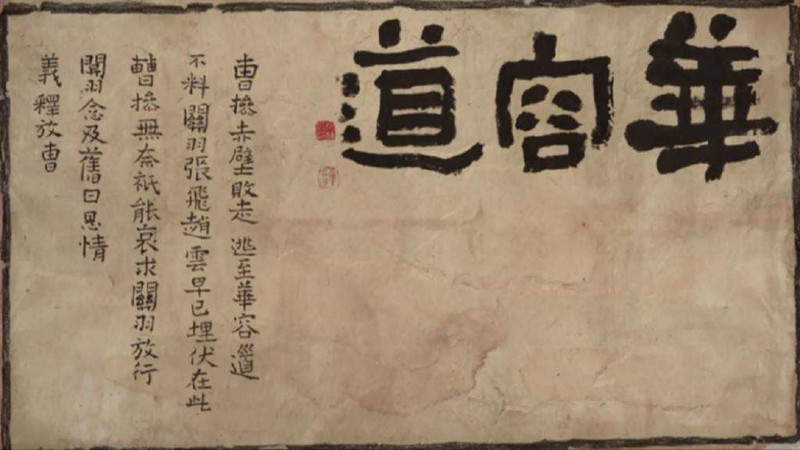 華容道
曹操赤壁敗走 逃至華容道
不料關羽張飛趙雲早已埋伏在此
曹操無奈祇能哀求關羽放行
關羽念及舊日恩情
義釋放曹